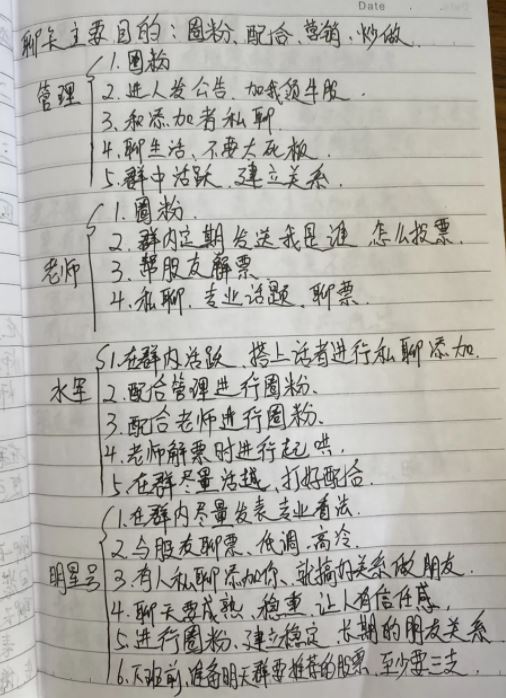 Date
聊天主要目的：圈粉、配合、营销、炒做
1.圈粉
管理 2.进人发公告、加我领牛股.
3.和添加者私聊.
4.聊生活、不要太死板.
5.群中活跃、建立关系.
1.圈粉.
2.群内定期发送我是谁 怎么投票.
老师 3.帮股友解票.
4.私聊、专业话题、聊票.
1.在群内活跃、搭上话者进行私聊添加.
水军 2.配合管理进行圈粉.
3.配合老师进行圈粉.
4.老师解票时进行起哄.
5.在群尽量活越、打好配合.
1.在群内尽量发表专业看法.
2.与股友聊票、低调、高冷.
明星号 3.有人私聊添加你、就搞好关系做朋友.
4.聊天要成熟、稳重 让人有信任感.
5.进行圈粉、建立稳定 长期的朋友关系
6.下班前,准备明天群要推荐的股票,至少要三支.